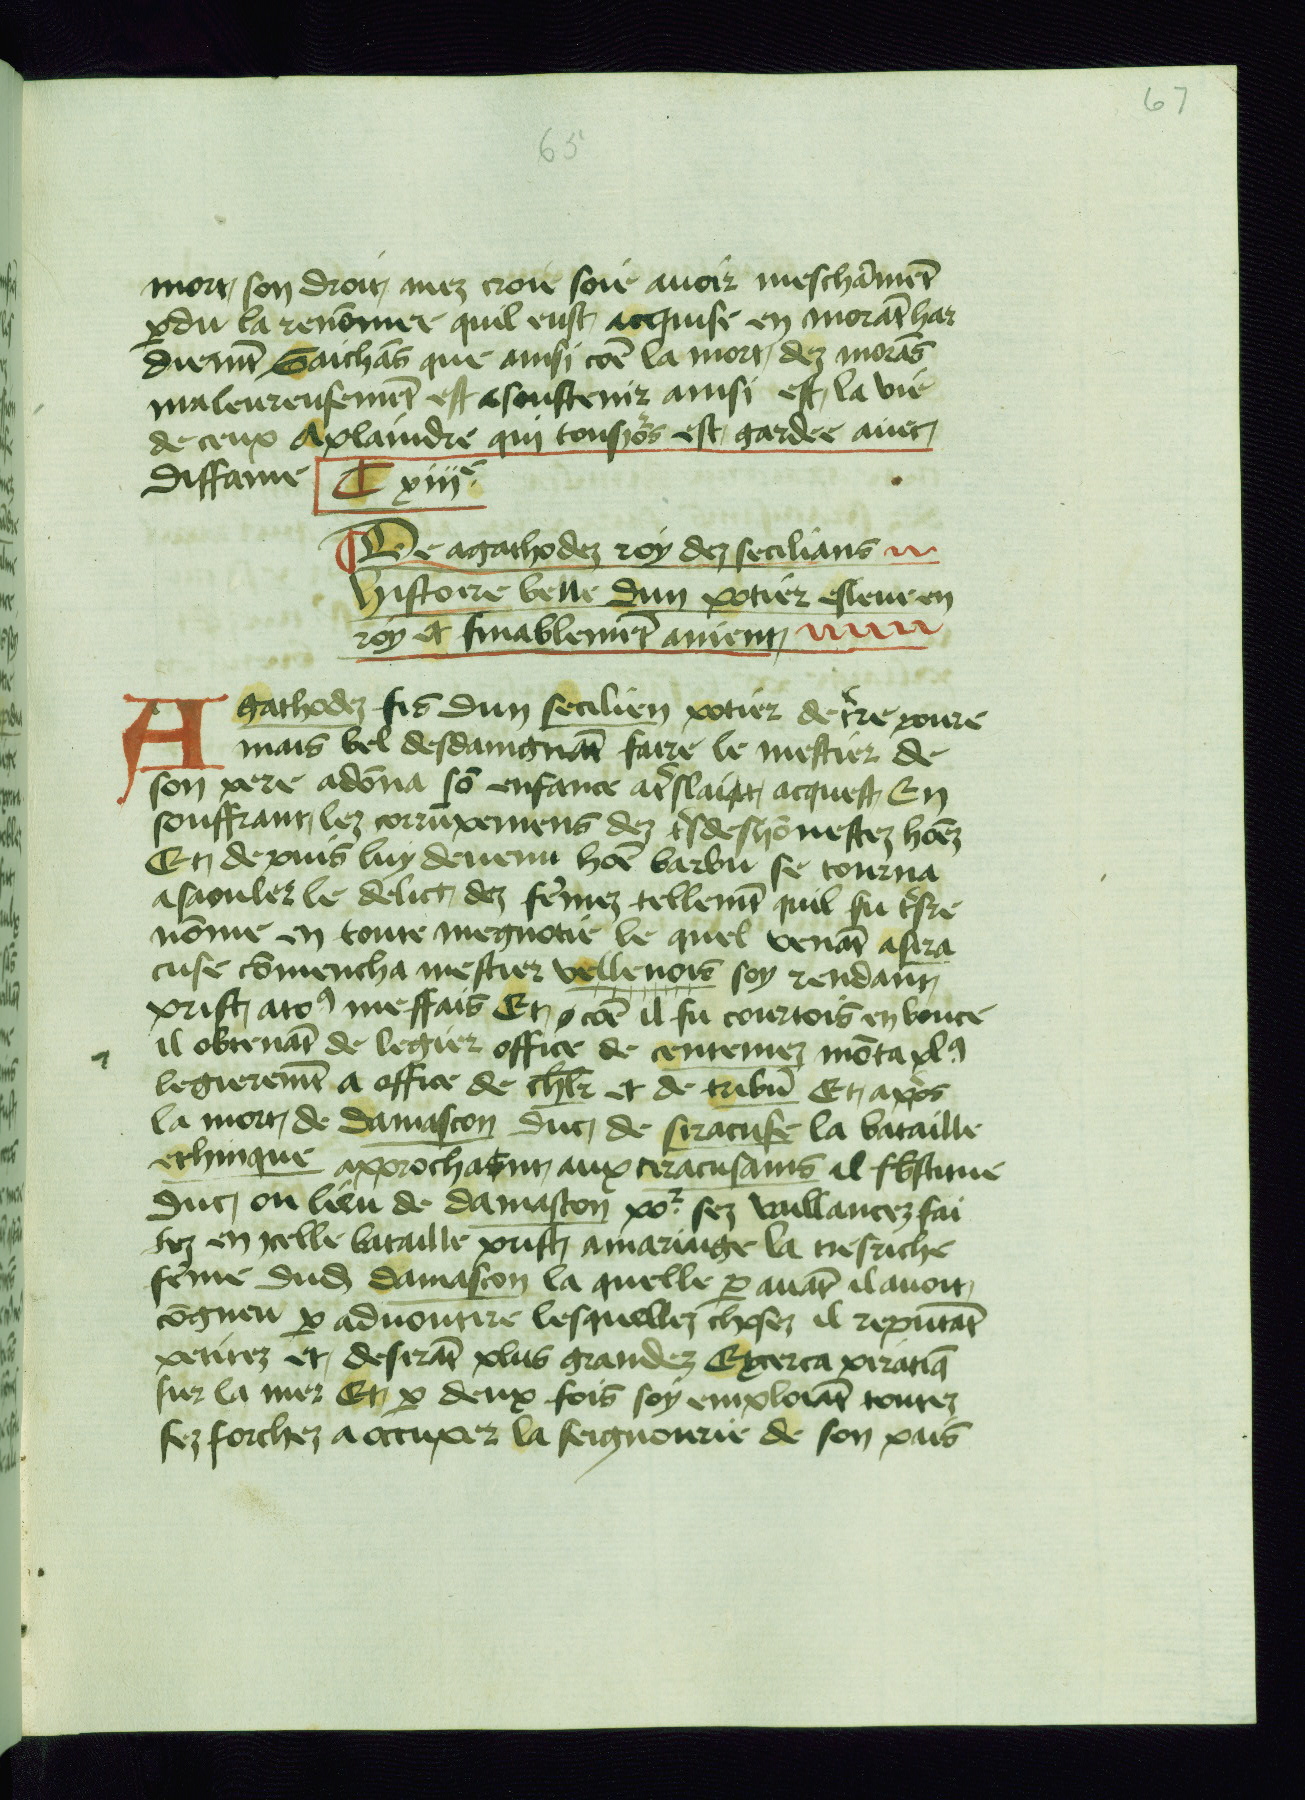 67
65
mort son droit mez croie soie auoir meschãmẽt
ꝑdu la renõmee quil eust acquise en morãt har
diemẽt Saichãs que ainsi cõe la mort dez morãs
maleureusemẽt est a soustenir ainsi est la vie
de ceux A plaindre qui tousiors est gardee auec
diffame C xiiiie
De agathodez roy dez secilians
histoire belle dun potier esleue en
roy et finablemẽt anient
Agathodez fis dun secilien potier de tr̃re poure
mais bel desdaingnãt faire le mestier de
son pere adõna sõ enfance a tr̃slaipt acquest En
souffrant lez corrũpemens dez tr̃sdeshõnestez hõez
Et depuis luy deuenu hõe barbu se tourna
a saouler le delict dez fẽmez tellemẽt quil fu
nõme en toute le quel venãt a sira
cuse cõmencha mestier vellenois soy rendant
prist a toꝰ meffais Et cõe il fu courtois en bouce
il obtenãt de legier office de centeniez mõta plꝰ
legieremẽt a office de chlr et de tribũ Et apres
la mort de damascon duc de siracuse la bataille
ethinque approchasnt aux ciracusains il sbstitue
duc ou lieu de damascon por sez vaillancez fai
tez en icelle bataille prist a mariage la tresriche
fẽme dud damascon la quelle ꝑ auãt il auoit
cõgneu ꝑ aduoutire lesquellez chosez il reputãt
petitez et desirãt plus grandez Exerca piratiq̃
sur la mer Et ꝑ deux fois soy emploiãt toutez
sez forchez a occuper la seignourie de son pais